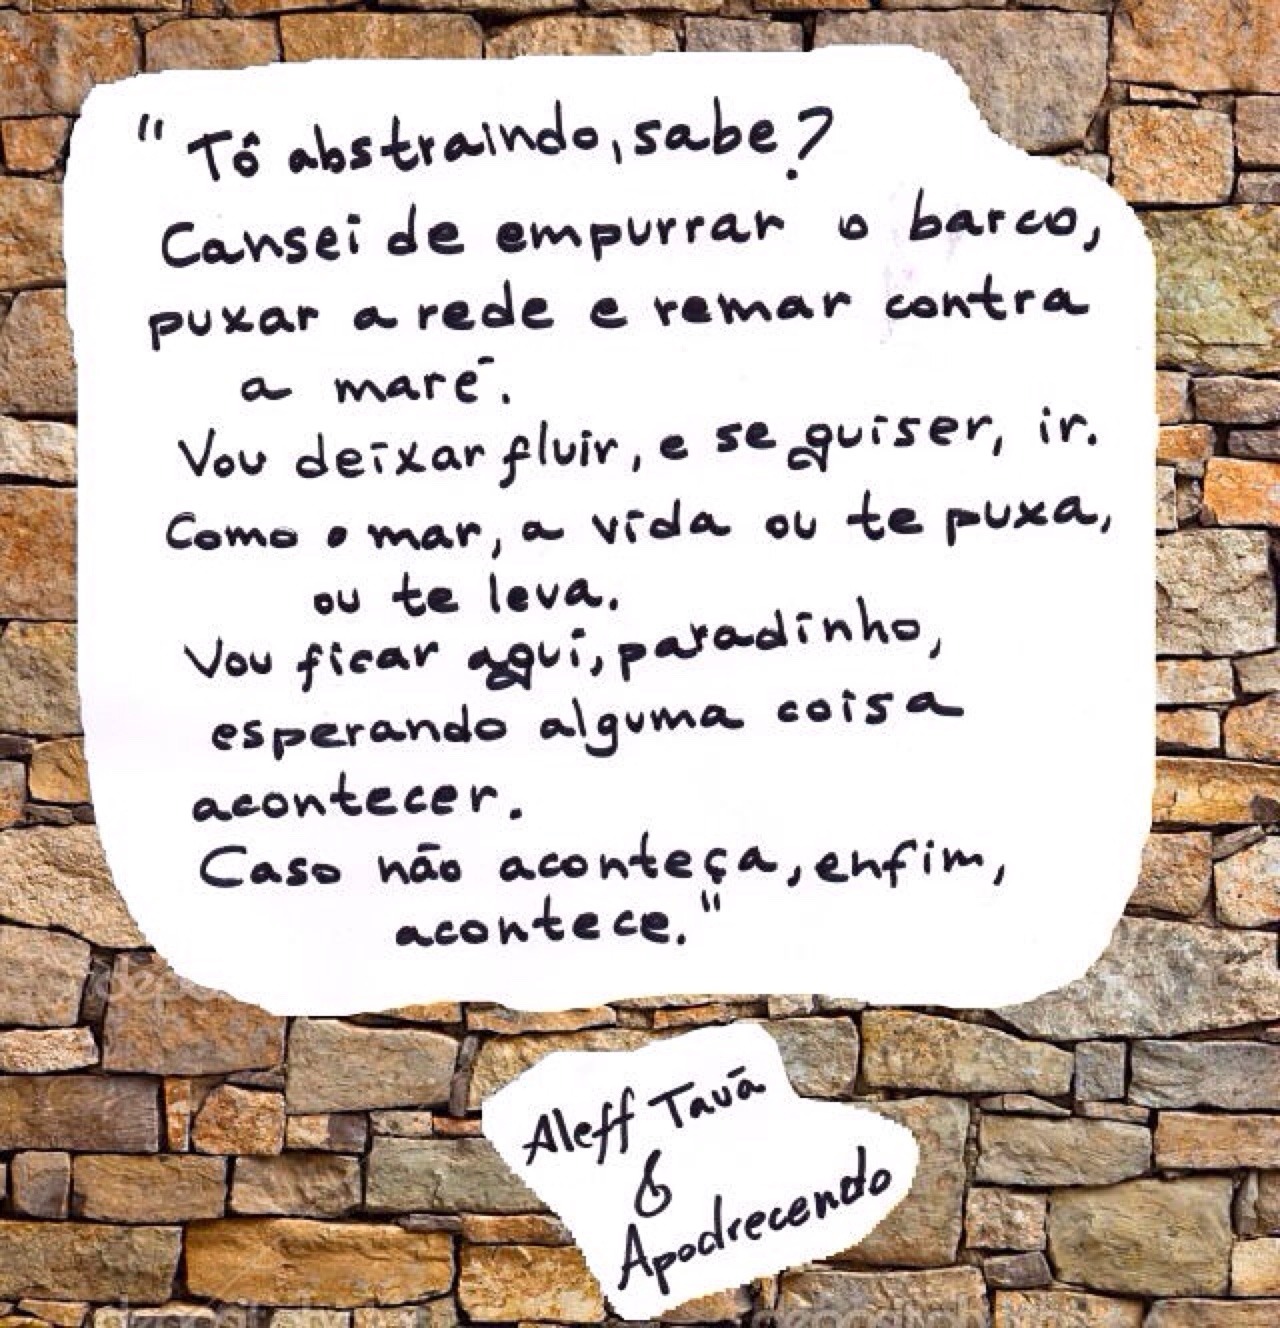 "Tô abstraindo, sabe?
Cansei de empurrar o barco,
puxar a rede e remar contra
a maré.
Vou deixar fluir, e se quiser, ir.
Como o mar, a vida ou te puxa,
ou te leva.
Vou ficar aqui, paradinho,
esperando alguma coisa
acontecer.
Caso não aconteça, enfim,
acontece."
Aleff Tauã
&
Apodrecendo